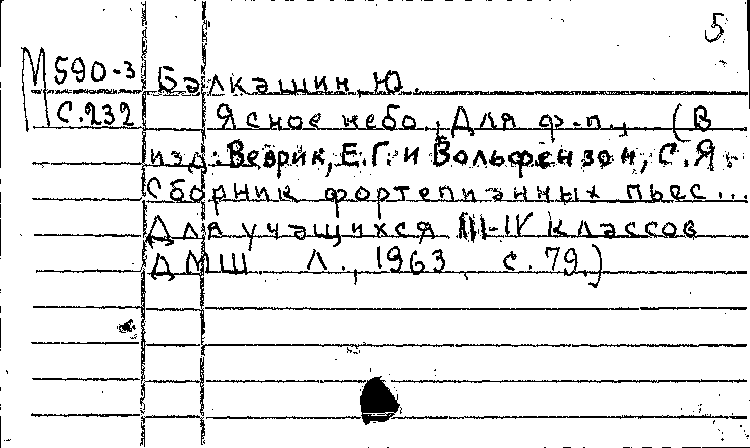 5
М590-3 Балкашин, Ю.
С.232 Ясное небо. Для ф.-п., (В
изд: Веврик, Е.Г. и Вольфензон, С.Я.
Сборник фортепианных пьес...
Для учащихся III-IV классов
ДМШ Л., 1963 с. 79.)